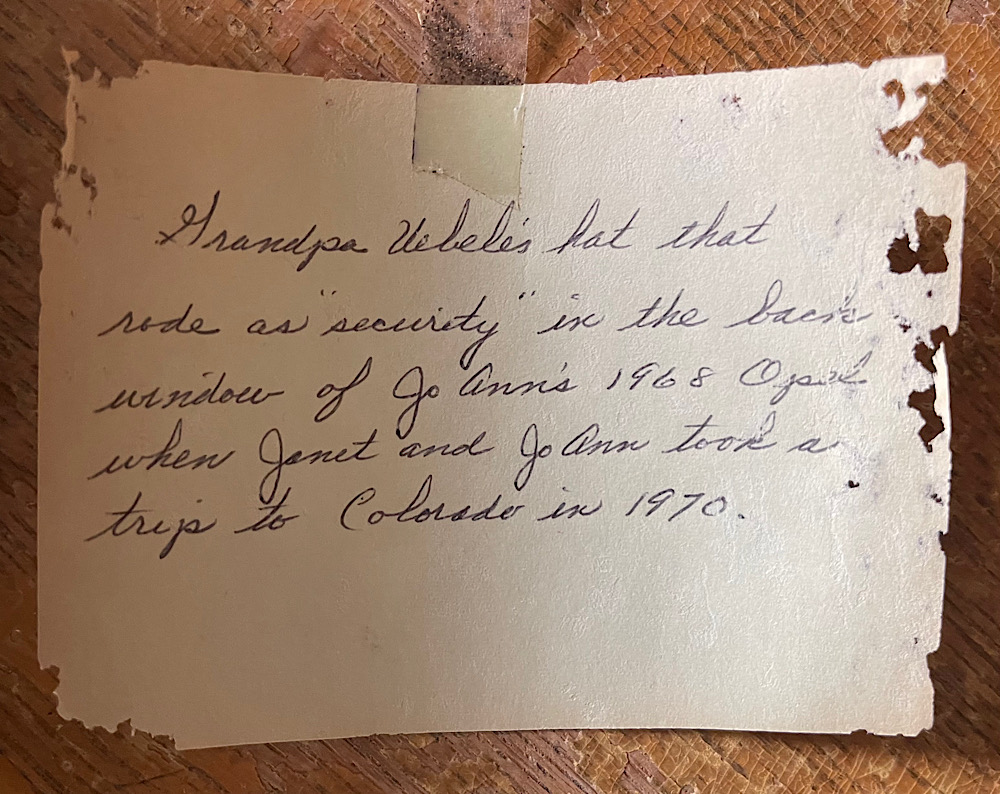 Grandpa Uebele's hat that
rode as "security" in the back
window of Jo Ann's 1968 Opel
when Janet and Jo Ann took a
trip to Colorado in 1970.